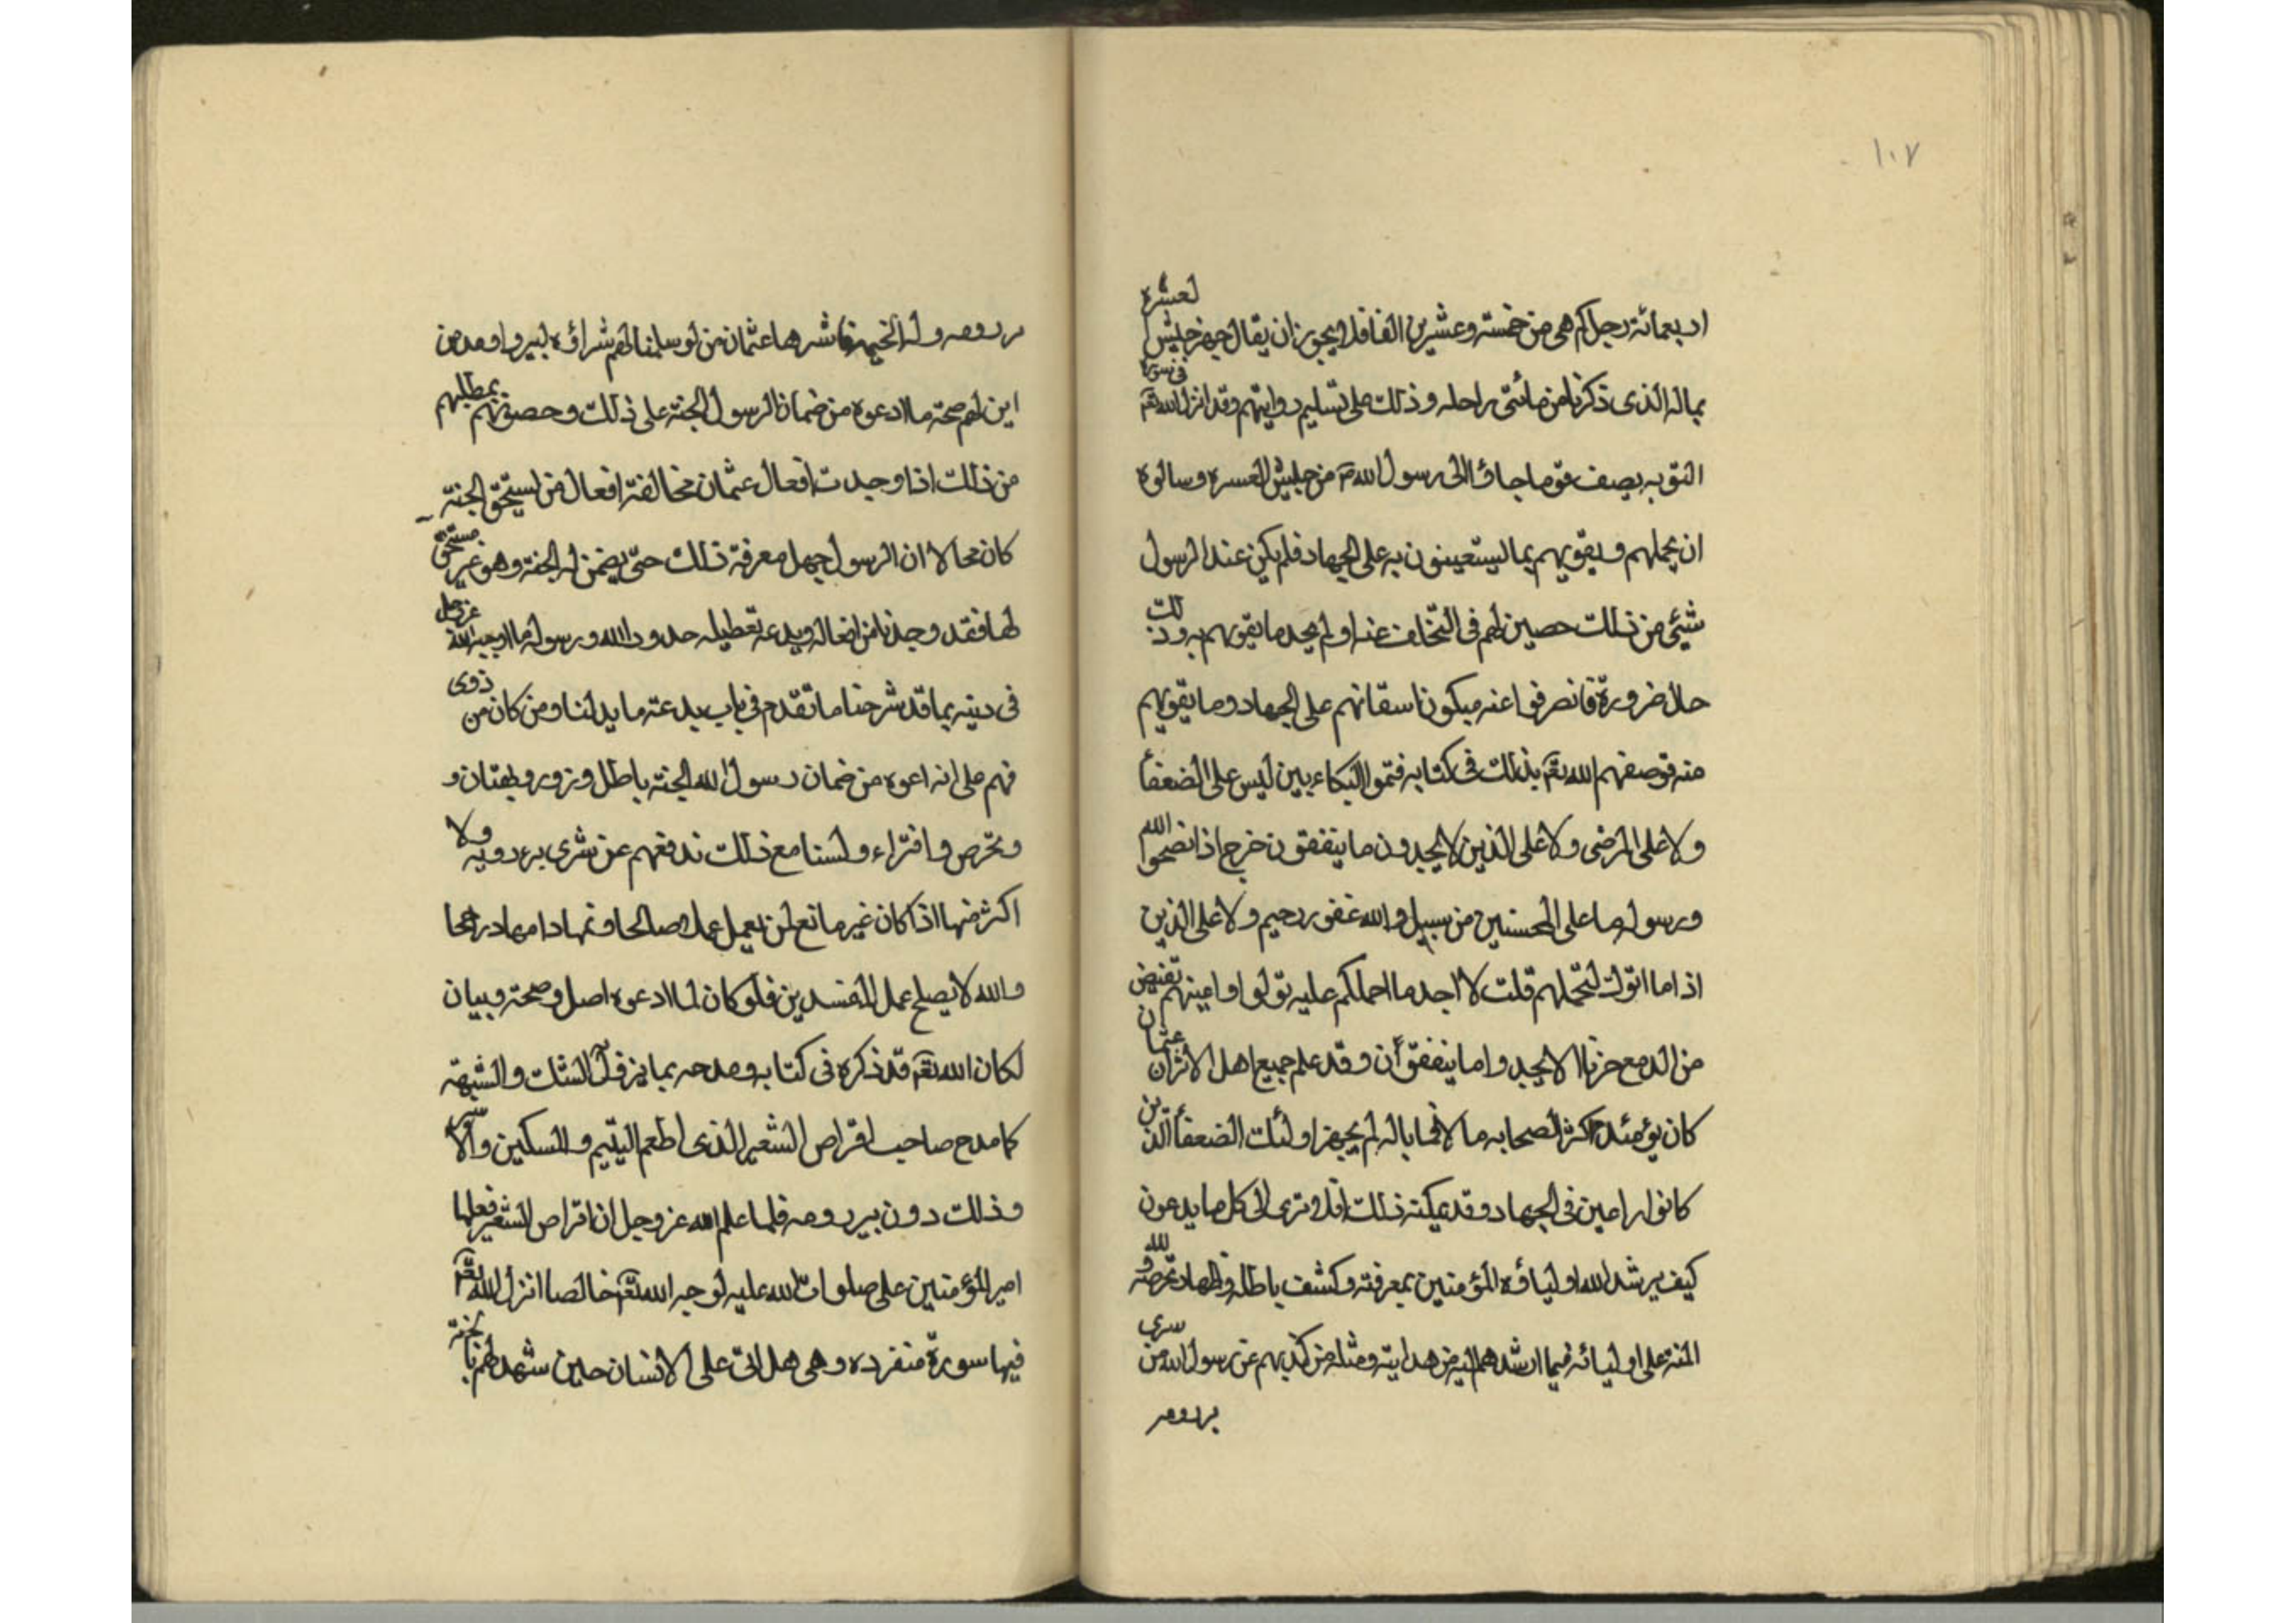 ١٠٧
اربعمائة رجل كم هى من خمسة وعشرين الفا فلا يجوز ان يقال جهز جيش العسرة
بماله الذى ذكرنا من مائتى راحله وذلك على تسليم روايتهم وقد انزل الله تعم فى سورة
التوبه يصف قوما جاؤ الى رسول الله من جيش العسره وسالوه
ان يحملهم ويقويهم بما يستعينون به على الجهاد فلم يكن عند الرسول
شيئى من ذلك لهم فى التخلف عنه اولم يجد ما يقويهم به وذلك
حال ضرورة فانصرفوا عنه على الجهاد وما يقويهم
منه فوصفهم الله تعم بذلك فى كتابه البكاء بين ليس على الضعفأ
ولا على المرضى ولا على الذين لا يجدون ما ينفقون حرج اذا نصحوا الله
ورسوله ما على المحسنين من سبيل والله غفور رحيم ولا على الذين
اذا ما اتوك لتحملهم قلت لا اجد ما احملكم عليه تولوا واعينهم تفيض
من الدمع حزنا الا يجدوا ما ينفقون وقد علم جميع اهل الاثر ان عثمان
كان يومئذ اكثر الصحابه مالا فما باله لم يجهز اولئك الضعفأ الذين
كانوا راغبين فى الجهاد وقد يمكنه ذلك افلا ترى الى كل ما يدعون
كيف يرشد الله اولياؤه المؤمنين بمعرفته وكشف باطله واظهار تخرصه ولله
المنه على اوليائه فيما ارشدهم اليه من هدايته ومثله من كذبهم عن رسول الله من سرى
بر رومه
بر رومه وله الجنه فاشرها عثمان من لو سلمنا لهم شراؤه لبير رومه من
اين لهم صحة ما ادعوه من ضمان الرسول الجنة على ذلك بمطلبهم
من ذلك اذا وجدت افعال عثمان مخالفة افعال من يستحق الجنة
كان محالا ان الرسول جهل معرفة ذلك حتى يضمن له الجنة وهو غير مستحق
لها فقد وجدنا من افعاله وبدعه تعطيله حدود الله ورسوله ما اوجبه الله عز وجل
فى دينه بما قد شرحنا ما تقدم فى باب بدعته ما يدلنا ومن كان من ذوى
فهم على انه ادعوه من ضمان رسول الله الجنه باطل وزور وبهتان و
وتخرص وافتراء ولسنا مع ذلك ندفعهم عن شرى بر رومه ولا
اكثر منها اذا كان غير مانع لمن يعمل عملا صالحا
والله لا يصلح عمل المفسدين فلو كان لما ادعوه اصل وصحة وبيان
لكان الله تعم قد ذكره فى كتابه ومدحه بما يزول الشك والشبهة
كما مدح صاحب اقراص الشعير الذى اطعم اليتيم والمسكين والاسير
وذلك دون بير رومه فلما علم الله عز وجل ان اقراص الشعير فعلها
امير المؤمنين على صلوات الله عليه لوجه الله تعم خالصا انزل الله تعم
فيها سورة منفرده وهى هل اتى على الانسان حين شهد لهم بالجنة